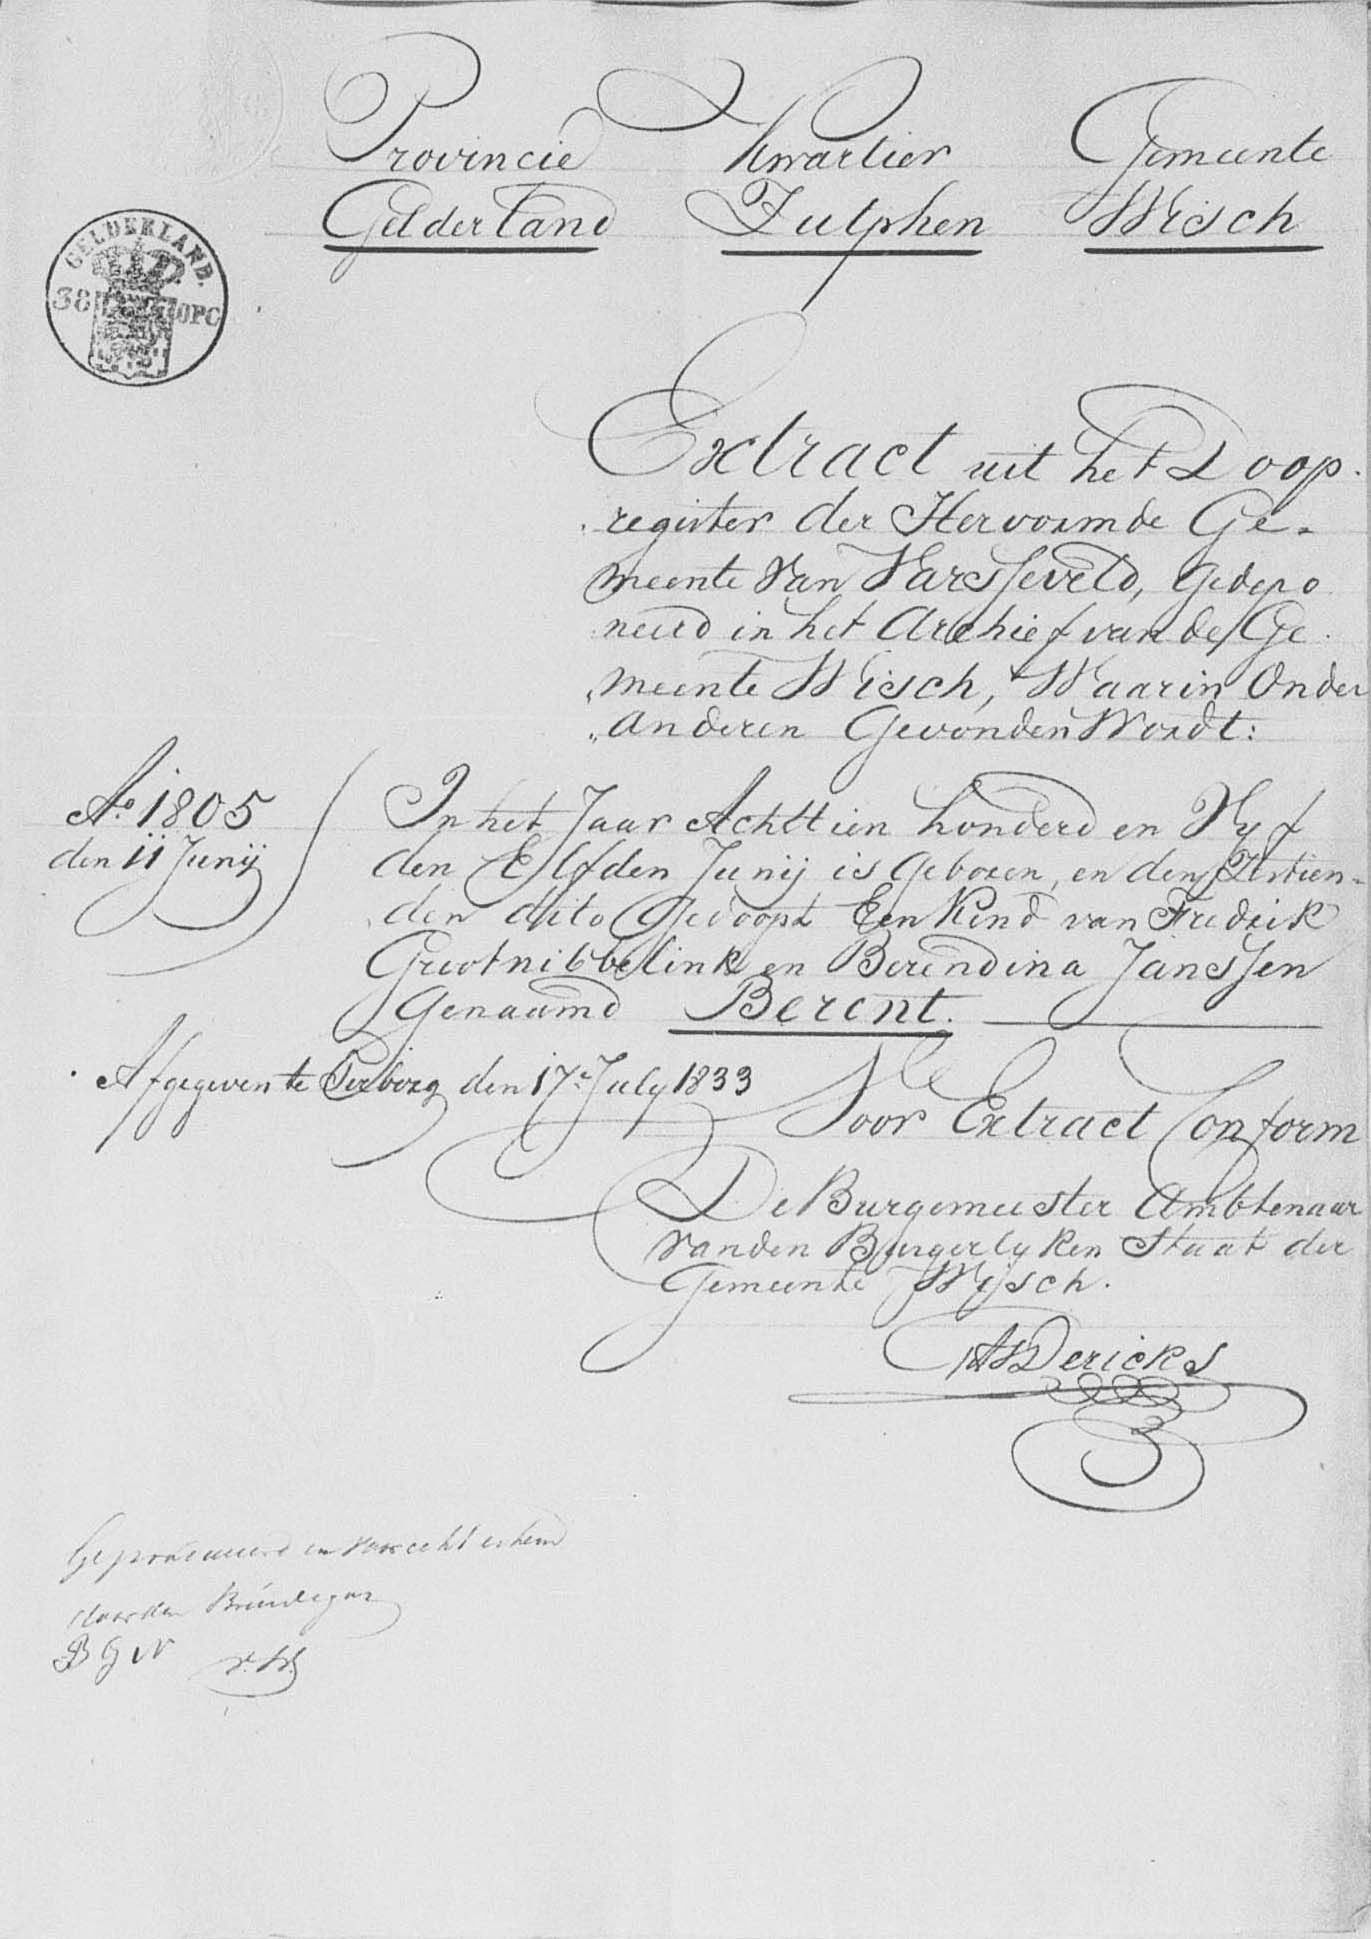 Provincie Kwartier Gemeente
Gelderland Zutphen Wisch
GELDERLAND.
38 OPC
Extract uit het Doop-
register der Hervormde Ge-
meente van Varsseveld, gedepo
neerd in het Archief van de Ge
meente Wisch, Waarin Onder
anderen Gevonden Wordt:
Ao 1805
den 11 Junij
In het Jaar Achttien honderd en Vyf
den Elfden Junij is geboren, en den Zestien-
den dito Gedoopt Een Kind van Fredrik
Grootnibbelink en Berendina Janssen
Genaamd Berent.
Afgegeven te Terborg den 17e July 1833
Voor Extract Conform
De Burgemeester Ambtenaar
van den Burgerlyken Staat der
Gemeente Wisch.
Dericks
door den Bruidegom
B G N